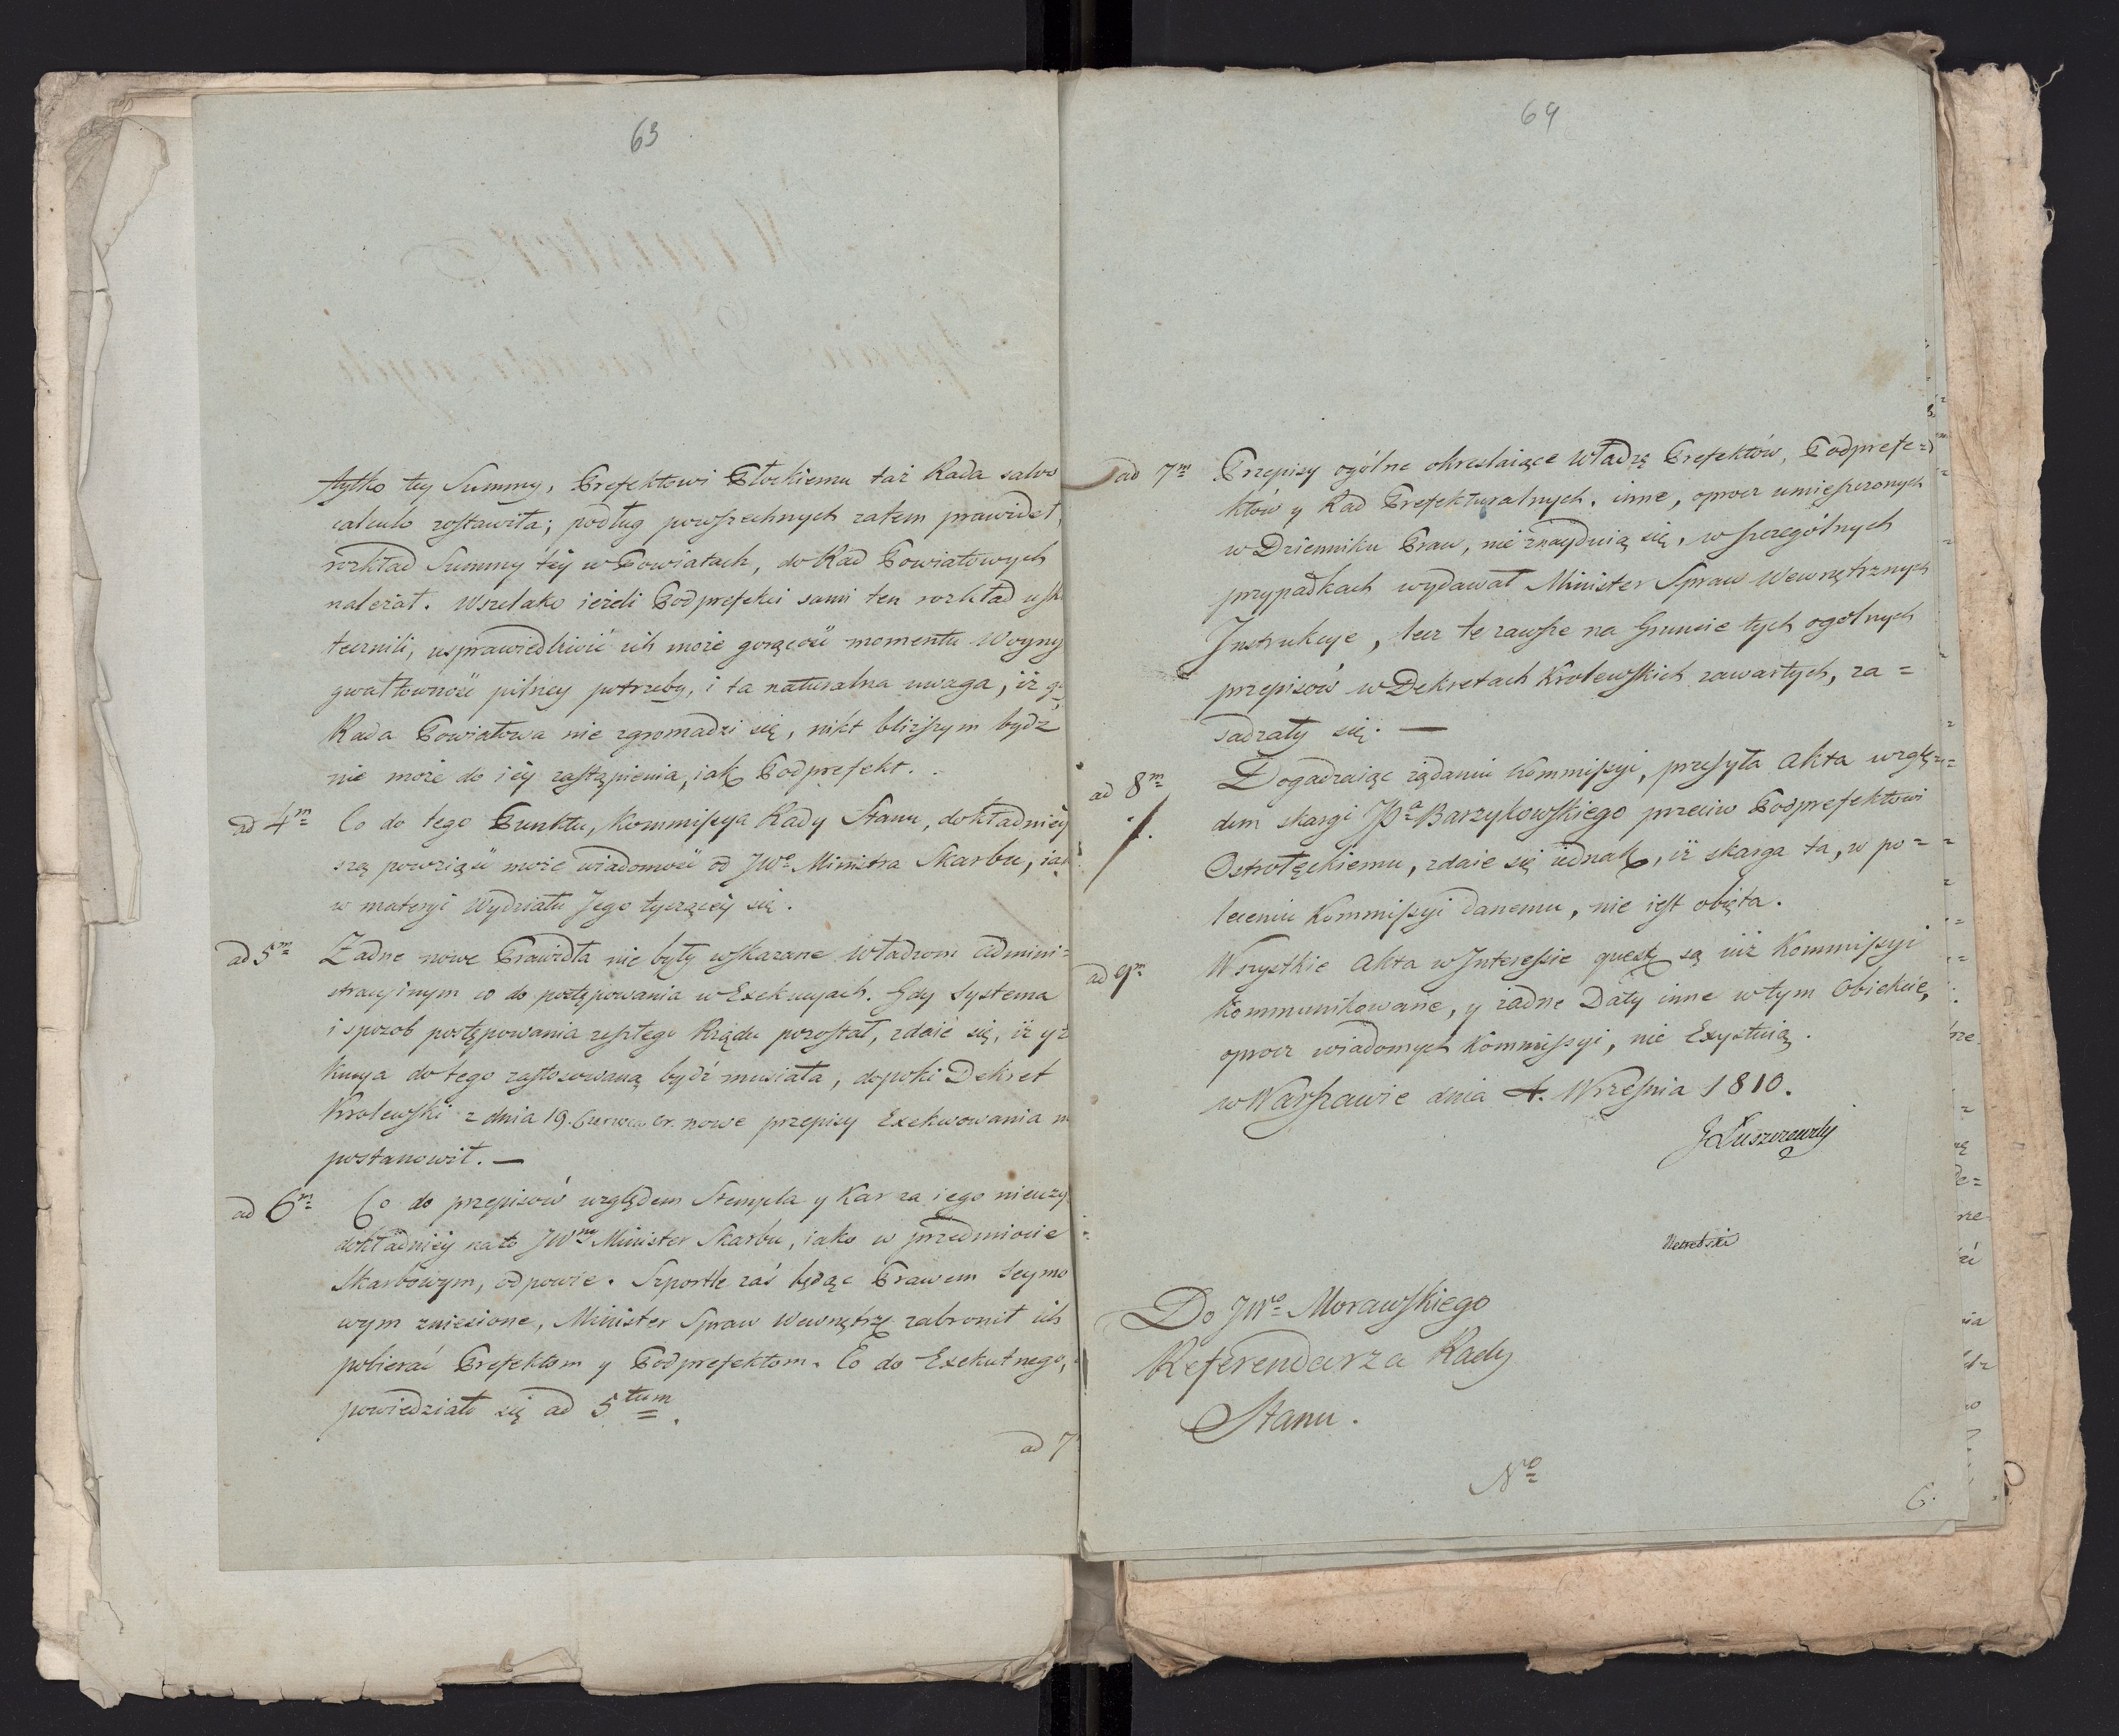 63
tylko tey Summy, Prefektowi Płockiemu taż Rada salvo
calculo zostawiła; podług powszechnych zatem prawideł,
rozkład Summy téy w Powiatach, do Rad Powiatowych
należał. Wszelako ieżeli Podprefekci sami ten rozkład usku
tecznili, usprawiedliwić ich może gorącość momentu Woyny
gwałtowność pilney potrzeby, i ta naturalna uwaga, iż g
Rada Powiatowa nie zgromadzi się, nikt bliższym bydź
nie może do iéy zastąpienia, iak Podprefekt.
ad 4m Co do tego Punktu, Kommissya Rady Stanu, dokładniéy
szą powziąść może wiadomość od JWo Ministra Skarbu, iak
w materyi Wydziału Jego tyczącéy się.
ad 5m Żadne nowe Prawidła nie były wskazane Władzom Admini=
stracyinym co do postępowania w Exekucyach. Gdy Systema
i sposob postępowania zeszłego Rządu pozostał, zdaie się, iż
Kucya do tego zastosowaną bydź musiała, dopoki Dekret
Krolewski z dnia 19. Czerwca Cr. nowe przepisy Exekwowania n
postanowił. —
ad 6m Co do przepisów względem Stempla y Kar za iego nieuży
dokładniéy na to JWny Minister Skarbu, iako w przedmiocie
Skarbowym, odpowie. Szportle zaś będąc Prawem Seymo
wym zniesione, Minister Spraw Wewnętrz zabronił ich
pobierać Prefektom y Podprefektom. Co do Exekutnego,
powiedziało się ad 5tum.
ad 7
64
ad 7m Przepisy ogólne okreslaiące Władzę Prefektów, Podprefe=
któw y Rad Prefekturalnych, inne, oprocz umieszczonych
w Dzienniku Praw, nie znayduią się, w szczególnych
przypadkach wydawał Minister Spraw Wewnętrznych
Instrukcye, lecz te zawsze na Gruncie tych ogolnych
przepisów w Dekretach Krolewskich zawartych, za=
sadzały się. —
ad 8m Dogadzaiąc żądaniu Kommissyi, przesyła Akta wzglę=
dem skargi JPa Barzykowskiego przeciw Podprefektowi
Ostrołęckiemu, zdaie się iednak, iż skarga ta, w po=
leceniu Kommissyi danemu, nie iest obięta.
ad 9m Wszystkie Akta w Interessie quest są iuż Kommissyi
Kommunikowane, y żadne Daty inne w tym Obiekcie,
oprocz wiadomych Kommissyi, nie Exystuią.
w Warszawie dnia 4. Września 1810.
J Łuszczewski
Do JWo Morawskiego
Referendarza Rady
Stanu.
No